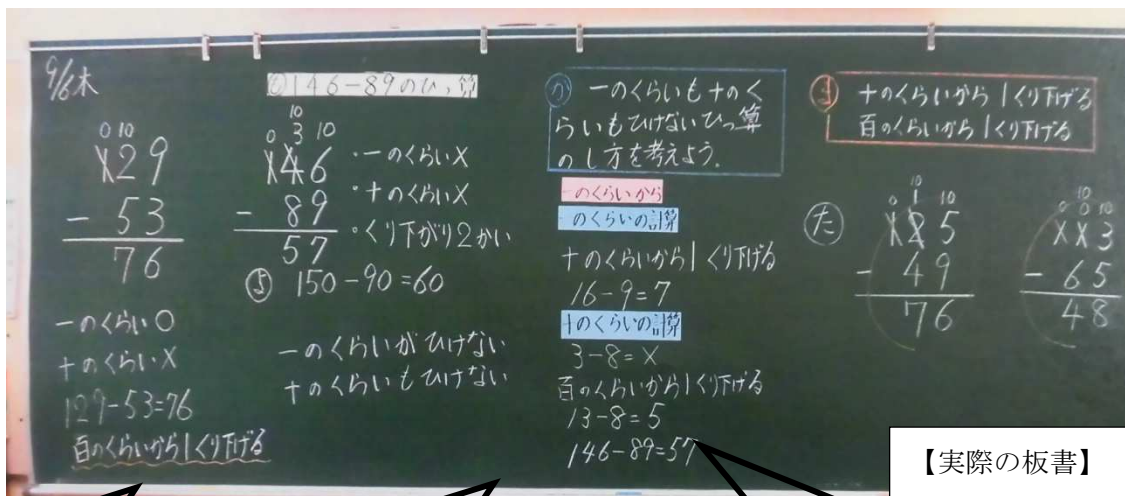 9/6木
0 10
129
- 53
76
一のくらい○
十のくらい×
129-53=76
百のくらいから1くり下げる
146-89のひっ算
10
0 3 10
146
- 89
57
・一のくらい×
・十のくらい×
・くり下がり2かい
150-90=60
一のくらいがひけない
十のくらいもひけない
か 一のくらいも十のく
らいもひけないひっ算
のし方を考えよう。
一のくらいから
一のくらいの計算
十のくらいから1くり下げる
16-9=7
十のくらいの計算
3-8=×
百のくらいから1くり下げる
13-8=5
146-89=57
ま 十のくらいから1くり下げる
百のくらいから1くり下げる
た
10
0 1 10
125
- 49
76
10
0 0 10
113
- 65
48
【実際の板書】